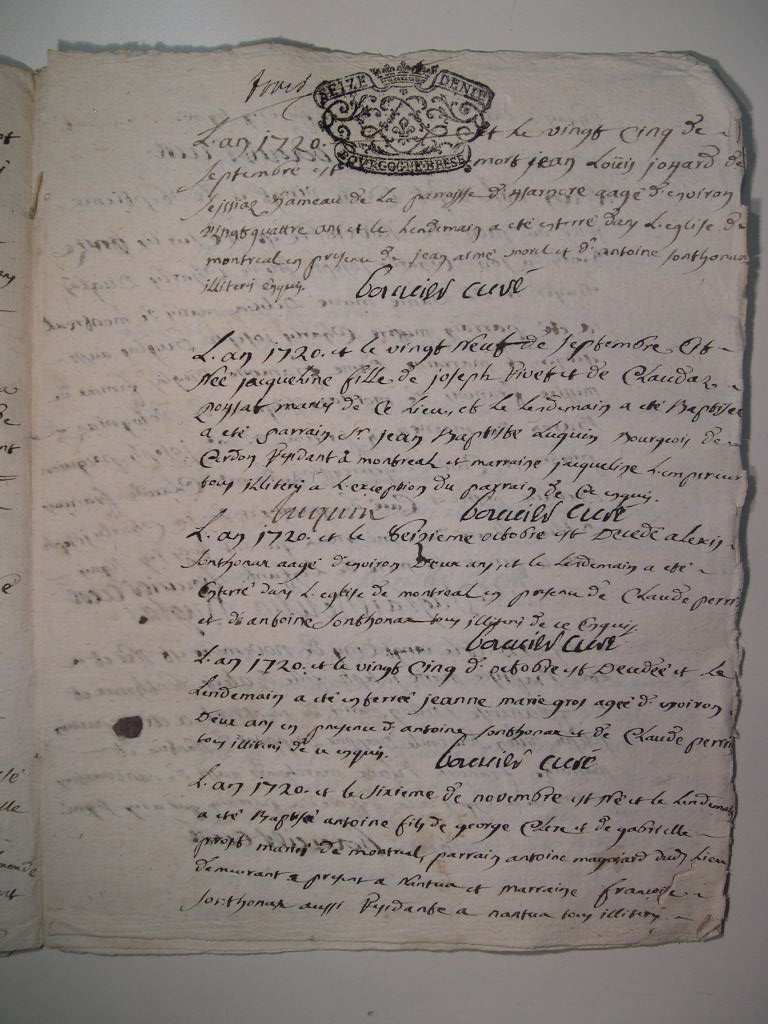 trois
SEIZE DENIE
BOURGOGNE BRESSE
L'an 1720. et le vingt Cinq de
septembre est mort jean Loüis joyard de
hameau de la parroisse d' aagé d'environ
vingtquattre ans et le Lendemain a eté enterré dans L'eglise de
montreal en presence de jean aimé morel et d' antoine sonthonax
illiteri enquis. curé
L'an 1720. et le vingt Neuf de septembre est
Née jacqueline fille de joseph et de Claudaz
mariés de Ce Lieu, et le lendemain a eté Baptisée
a eté parrain Sr. jean Baptiste Luquin Bourgeois de
Cerdon Residant à montreal et marraine jacqueline L'empereur
tous illiteri a L'exception du parrain de Ce enquis.
Luquin curé
L'an 1720. et le seizieme octobre est Decedé alexis
sonthonax aagé d'environ Deux ans, et le lendemain a eté
Enterré dans L'eglise de montreal en presence de Claude perrin
et d' antoine sonthonax tous illiteri de ce Enquis.
curé
L'an 1720. et le vingt Cinq d' octobre est Decedée et le
Lendemain a eté enterreé jeanne marie gros ageé d' environ
Deux ans en presence d' antoine sonthonax et de Claude perrin
tous illiteri de ce enquis. curé
L'an 1720. et le sixieme de novembre est Né et le Lendemain
a eté Baptisé antoine fils de george Clerc et de gabrielle
prost mariés de montreal, parrain antoine dudt Lieu
demeurant a present a Nantua et marraine francoise
sonthonax aussi Residante a nantua tous illiteri